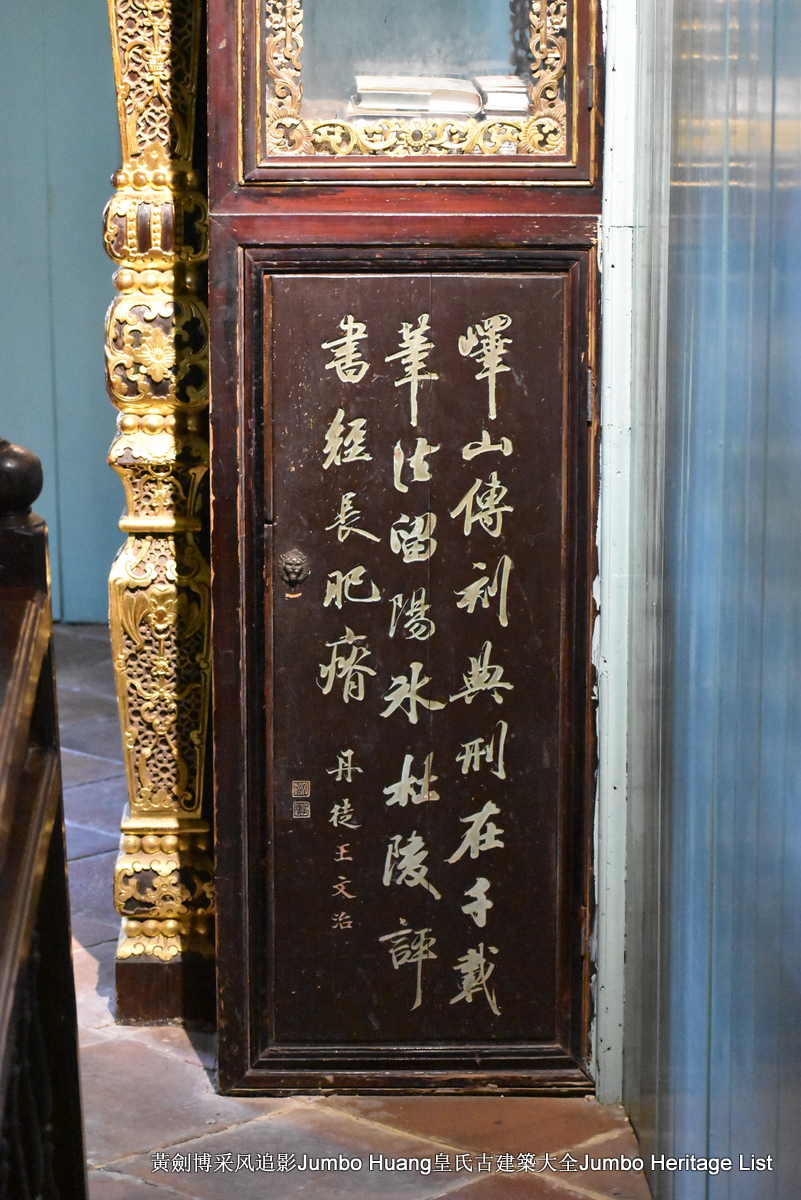 嶧山傳刻典刑在千載
筆法留陽冰杜陵評
書經長肥瘠
丹徒王文治
黃劍博采风追影Jumbo Huang皇氏古建築大全Jumbo Heritage List